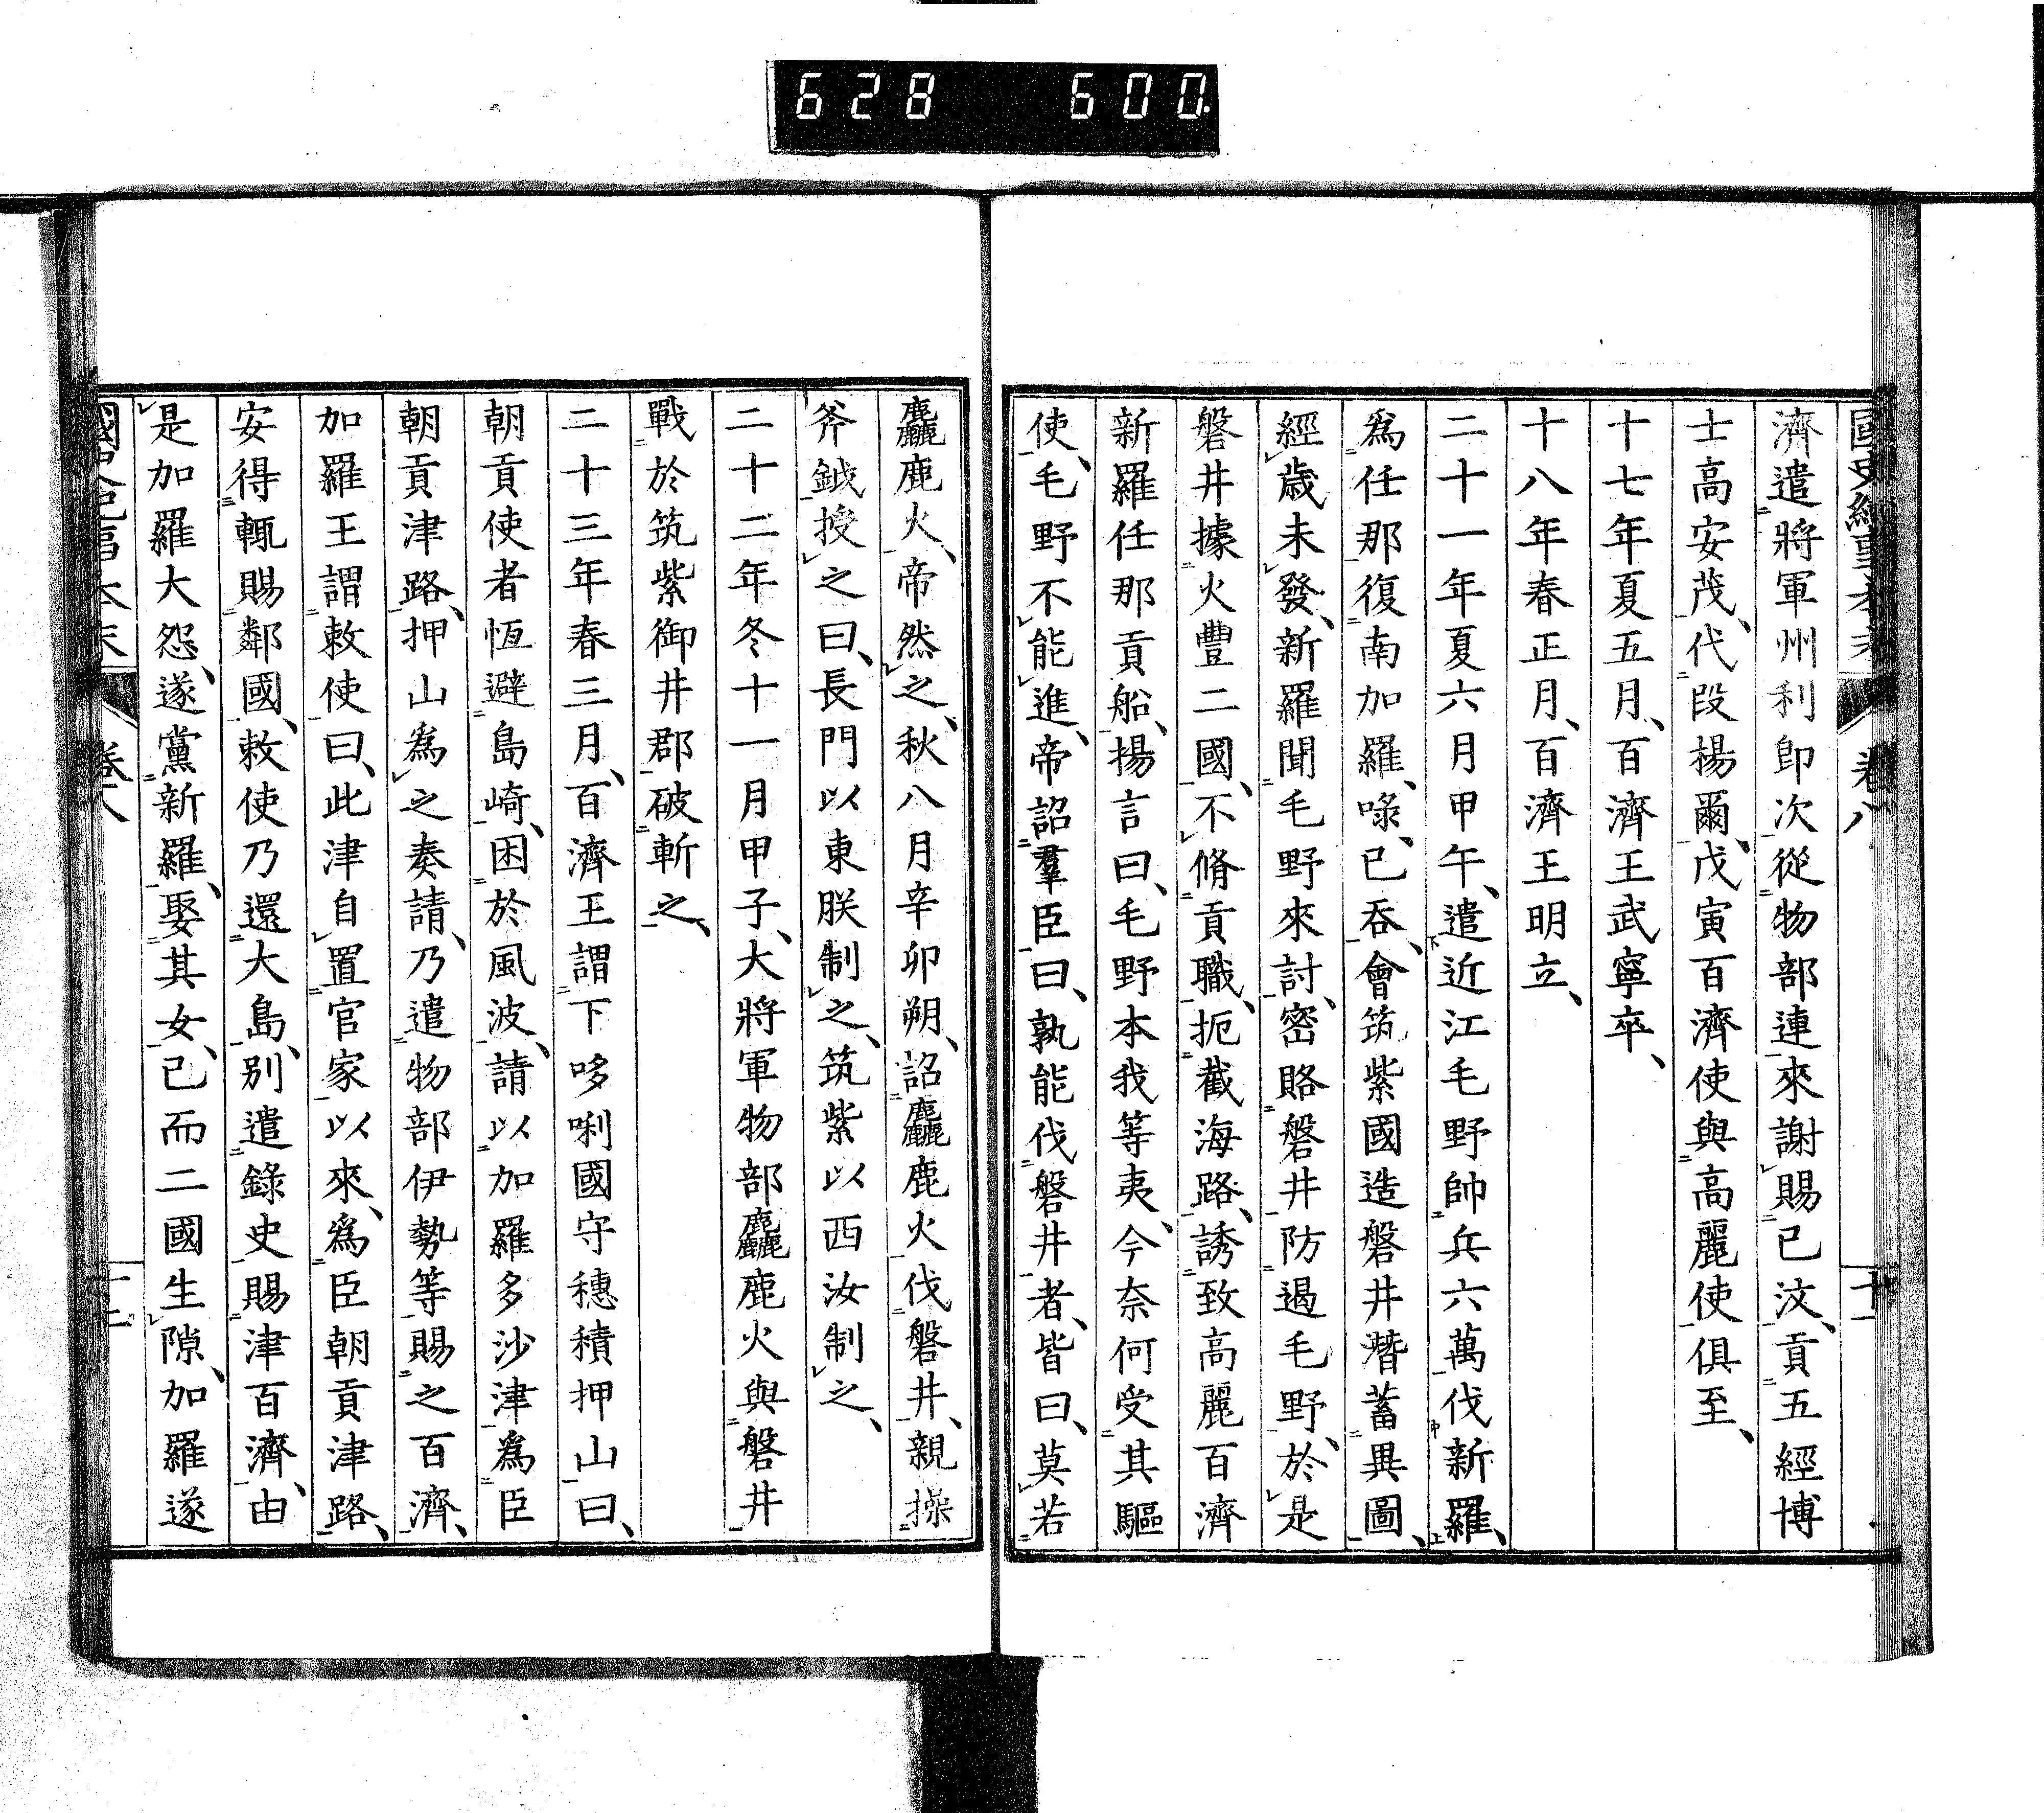 628 600.
卷八
十一
濟遣將軍州利卽次從物部連來謝賜已汶、貢五經博
士高安茂、代段揚爾、戊寅百濟使與高麗使俱至、
十七年夏五月、百濟王武寧卒、
十八年春正月、百濟王明立、
二十一年夏六月甲午、遣近江毛野帥兵六萬伐新羅、
爲任那復南加羅、㖨、已吞、會筑紫國造磐井潛蓄異圖、
經歲未發、新羅聞毛野來討、密賂磐井防遏毛野、於是
磐井據火豐二國、不脩貢職、扼截海路、誘致高麗百濟
新羅任那貢船、揚言曰、毛野本我等夷、今奈何受其驅
使、毛野不能進、帝詔羣臣曰、孰能伐磐井者、皆曰、莫若
麤鹿火、帝然之、秋八月辛卯朔、詔麤鹿火伐磐井、親操
斧鉞授之曰、長門以東朕制之、筑紫以西汝制之、
二十二年冬十一月甲子、大將軍物部麤鹿火與磐井
戰於筑紫御井郡破斬之、
二十三年春三月、百濟王謂下哆唎國守穗積押山曰、
朝貢使者恆避島崎、困於風波、請以加羅多沙津爲臣
朝貢津路、押山爲之奏請、乃遣物部伊勢等賜之百濟、
加羅王謂敕使曰、此津自置官家以來、爲臣朝貢津路、
安得輒賜鄰國、敕使乃還大島、別遣錄史賜津百濟、由
是加羅大怨、遂黨新羅、娶其女、已而二國生隙、加羅遂
卷八